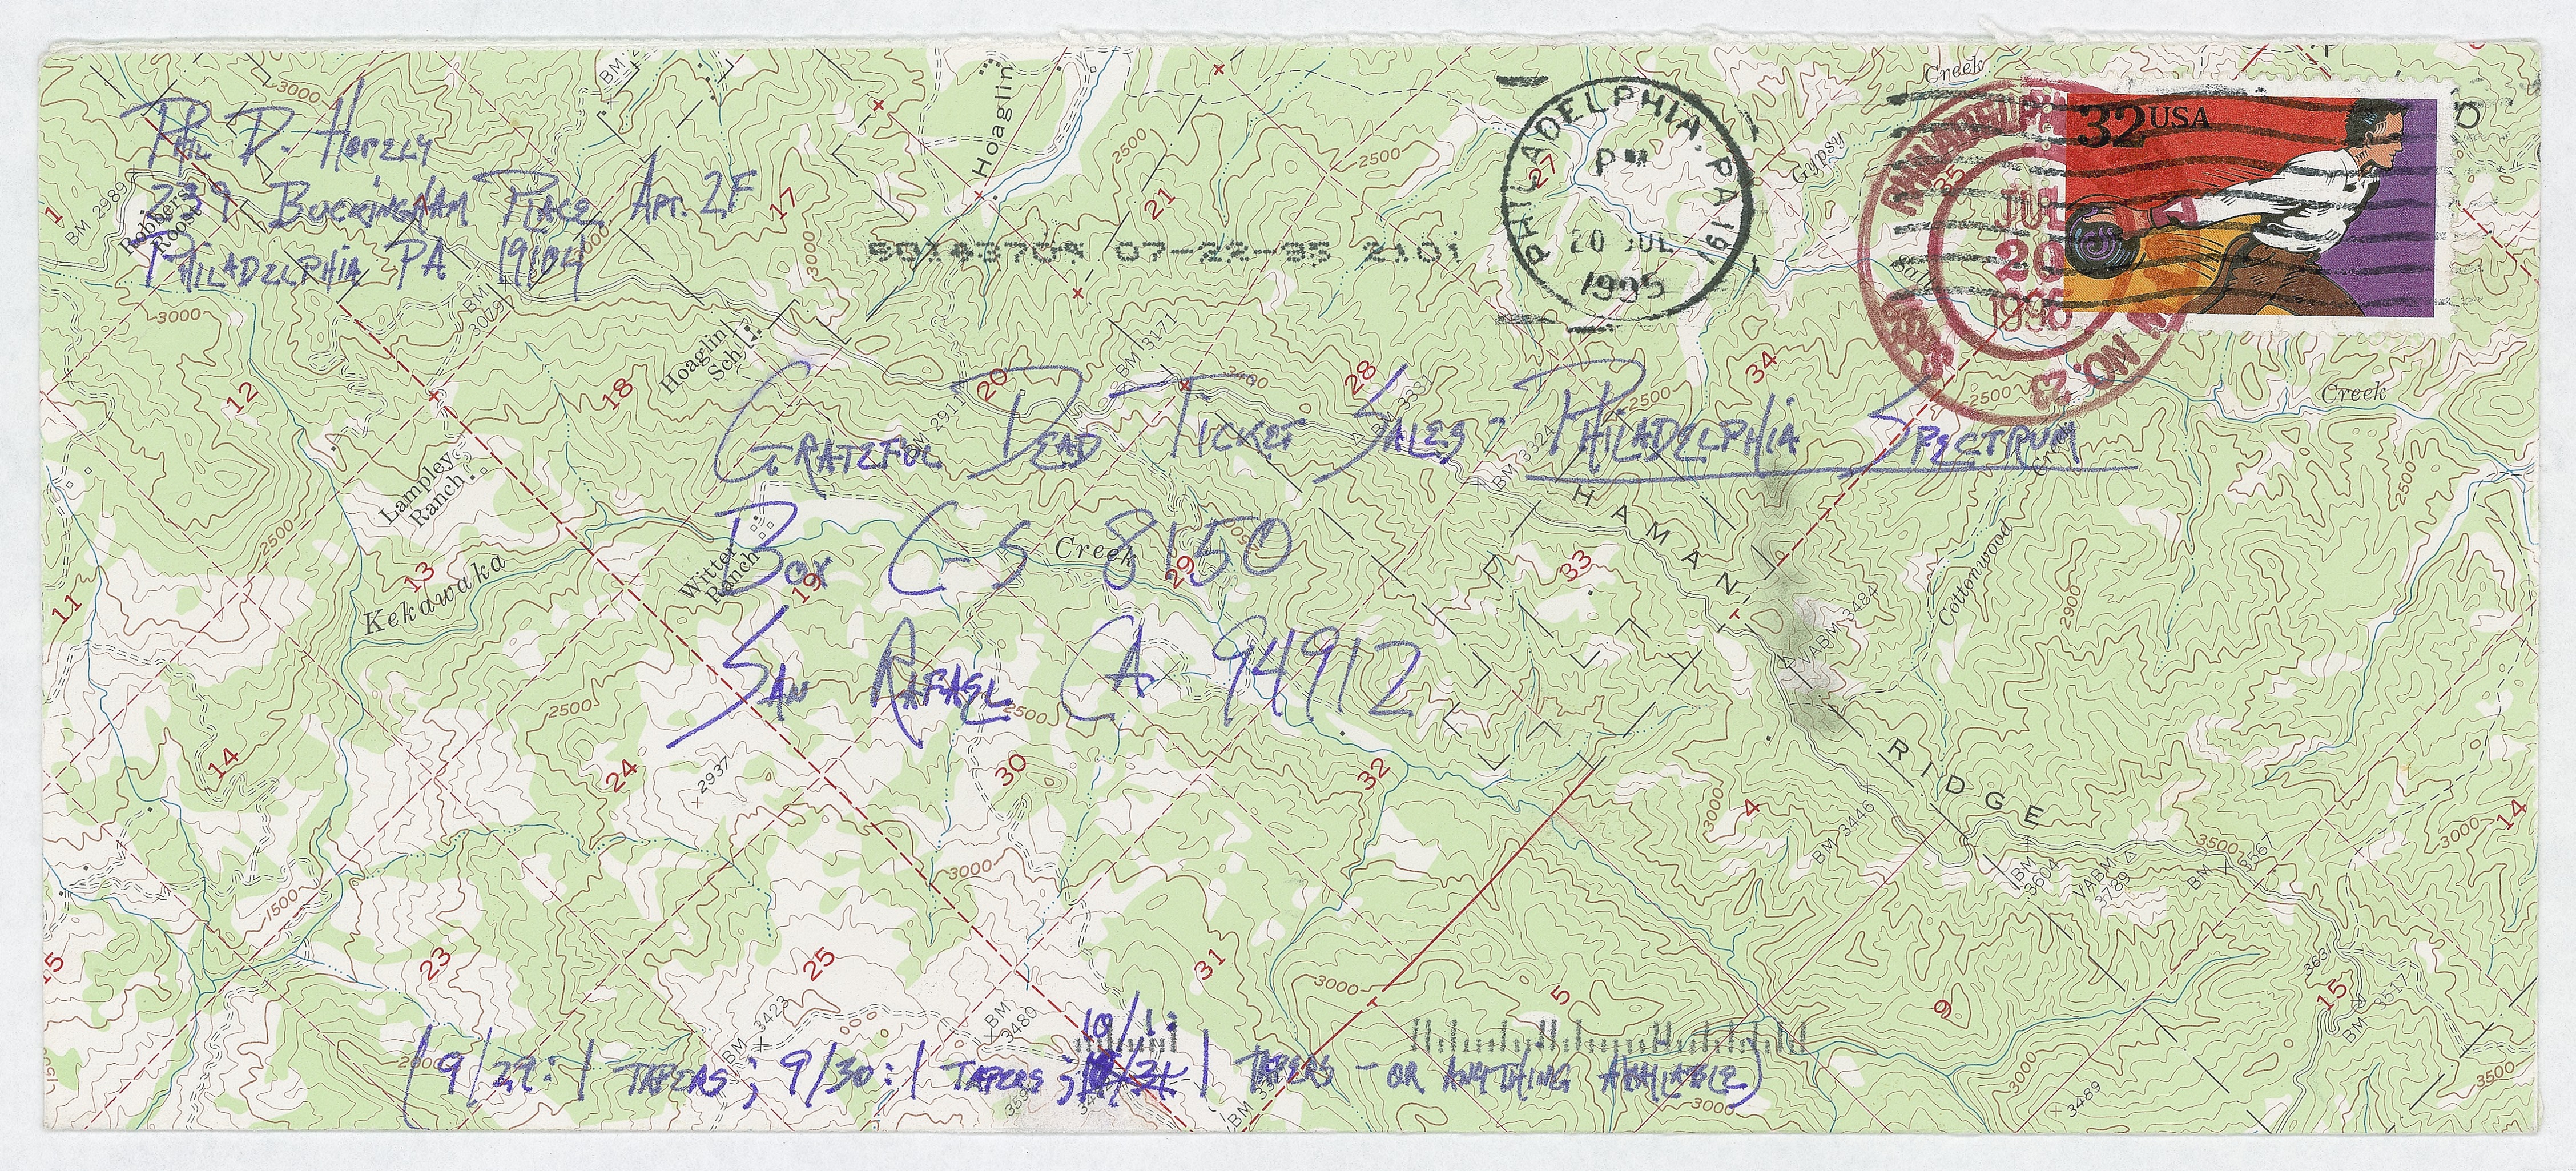 Phil D. Horzly
239 Buckingham Place Apt. 2F
Philadelphia PA 19104
07-22-95 2101
PHILADELPHIA, PA 191
PM
20 JUL
1995
JUL
20
1995
NO. 23
32 USA
Grateful Dead Ticket Sales - Philadelphia Spectrum
Box C-S 8150
San Rafael CA 94912
(9/29: 1 Tapers; 9/30: 1 Tapers; 10/1: 1 Tapers - or anything available)
Robbers Roost
BM 2989
BM 3079
Hoaglin
Hoaglin Sch
BM 3171
BM 2911
Gypsy
Creek
Salt
Creek
Lampley Ranch
Witter Ranch
Kekawaka
Creek
HAMANN
RIDGE
Cottonwood
Creek
VABM 3484
BM 3324
BM 3446
BM 3604
VABM 3789
BM 3567
BM 3517
BM 3423
BM 3480
2937
3489
1
11
12
13
14
15
17
18
19
20
21
23
24
25
27
28
29
30
31
32
33
34
35
4
5
9
14
15
3000
2500
1500
2000
2900
3500